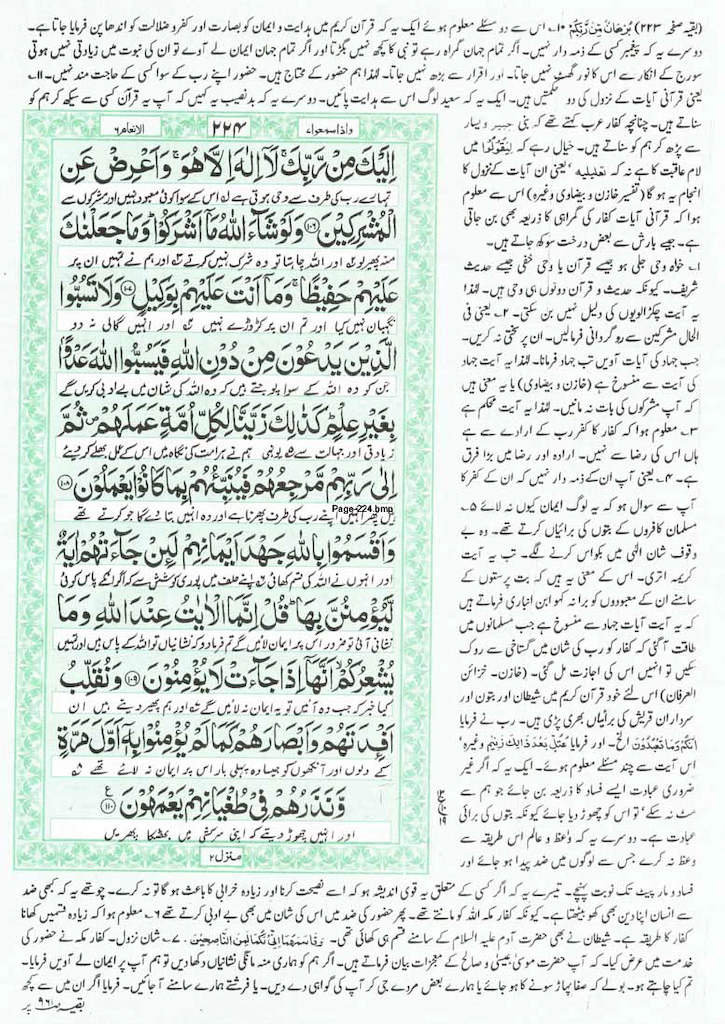 (بقیہ صفحہ ۲۲۳) بُرْهَانٌ مِّنْ رَّبِّكُمْ ۱۰۔ اس سے دو مسئلے معلوم ہوئے ایک یہ کہ قرآن کریم میں ہدایت و ایمان کو بصارت اور کفر و ضلالت کو اندھا پن فرمایا جاتا ہے۔
دوسرے یہ کہ پیغمبر کسی کے ذمہ دار نہیں۔ اگر تمام جہان گمراہ رہے تو نبی کا کچھ نہیں بگڑتا اور اگر تمام جہان ایمان لے آوے تو ان کی نبوت میں زیادتی نہیں ہوتی
سورج کے انکار سے اس کا نور گھٹ نہیں جاتا۔ اور اقرار سے بڑھ نہیں جاتا۔ لہٰذا ہم حضور کے محتاج ہیں۔ حضور اپنے رب کے سوا کسی کے حاجت مند نہیں۔ ۱۱۔
یعنی قرآنی آیات کے نزول کی دو حکمتیں ہیں۔ ایک یہ کہ سعید لوگ اس سے ہدایت پائیں۔ دوسرے یہ کہ بدنصیب یہ کہیں کہ آپ یہ قرآن کسی سے سیکھ کر ہم کو
سناتے ہیں۔ چنانچہ کفار عرب کہتے تھے کہ نبی جبیر و یسار
سے پڑھ کر ہم کو سناتے ہیں۔ خیال رہے کہ لِيَقُوْلُوْا میں
لام عاقبت کا ہے نہ کہ تعلیلیہ، یعنی ان آیات کے نزول کا
انجام یہ ہو گا (تفسیر خازن و بیضاوی وغیرہ) اس سے معلوم
ہوا کہ قرآنی آیات کفار کی گمراہی کا ذریعہ بھی بن جاتی
ہے۔ جیسے بارش سے بعض درخت سوکھ جاتے ہیں۔
۱۔ خواہ وحی جلی ہو جیسے قرآن یا وحی خفی جیسے حدیث
شریف۔ کیونکہ حدیث و قرآن دونوں ہی وحی ہیں۔ لہٰذا
یہ آیت چکڑالویوں کی دلیل نہیں بن سکتی۔ ۲۔ یعنی فی
الحال مشرکین سے روگردانی فرمالیں۔ ان پر سختی نہ کریں۔
جب جہاد کی آیات آویں تب جہاد فرمانا۔ لہٰذا یہ آیت جہاد
کی آیت سے منسوخ ہے (خازن و بیضاوی) یا یہ معنی ہیں
کہ آپ مشرکوں کی بات نہ مانیں۔ لہٰذا یہ آیت محکم ہے
۳۔ معلوم ہوا کہ کفار کا کفر رب کے ارادے سے ہے
ہاں اس کی رضا سے نہیں۔ ارادہ اور رضا میں بڑا فرق
ہے۔ ۴۔ یعنی آپ ان کے ذمہ دار نہیں کہ ان کے کفر کا
آپ سے سوال ہو کہ یہ لوگ ایمان کیوں نہ لائے ۵۔
مسلمان کافروں کے بتوں کی برائیاں کرتے تھے۔ وہ بے
وقوف شان الٰہی میں بکواس کرنے لگے۔ تب یہ آیت
کریمہ اتری۔ اس کے معنی یہ ہیں کہ بت پرستوں کے
سامنے ان کے معبودوں کو برا نہ کہو ابن انباری فرماتے ہیں
کہ یہ آیت آیات جہاد سے منسوخ ہے جب مسلمانوں میں
طاقت آ گئی کہ کفار کو رب کی شان میں گستاخی سے روک
سکیں تو انہیں اس کی اجازت مل گئی۔ (خازن۔ خزائن
العرفان) اس لئے خود قرآن کریم میں شیطان اور بتوں اور
سرداران قریش کی برائیاں بھری پڑی ہیں۔ رب نے فرمایا
اِنَّكُمْ وَمَا تَعْبُدُوْنَ الخ۔ اور فرمایا عُتُلٍّ بَعْدَ ذٰلِكَ زَنِيْمٍ وغیرہ،
اس آیت سے چند مسئلے معلوم ہوئے۔ ایک یہ کہ اگر غیر
ضروری عبادت ایسے فساد کا ذریعہ بن جائے جو ہم سے
مٹ نہ سکے، تو اس کو چھوڑ دیا جائے کیونکہ بتوں کی برائی
عبادت ہے۔ دوسرے یہ کہ واعظ و عالم اس طریقہ سے
وعظ نہ کرے جس سے لوگوں میں ضد پیدا ہو جائے اور
الانعام ۶
۲۲۴
واذا سمعوا ۷
اِلَيْكَ مِنْ رَّبِّكَ ۚ لَآ اِلٰهَ اِلَّا هُوَ ۚ وَاَعْرِضْ عَنِ
تمہارے رب کی طرف سے وحی ہوتی ہے ۱ اس کے سوا کوئی معبود نہیں اور مشرکوں سے
الْمُشْرِكِيْنَ ۱۰۶ وَلَوْ شَآءَ اللّٰهُ مَآ اَشْرَكُوْا ؕ وَمَا جَعَلْنٰكَ
منہ پھیر لو ۲ اور اللہ چاہتا تو وہ شرک نہیں کرتے ۳ اور ہم نے تمہیں ان پر
عَلَيْهِمْ حَفِيْظًا ۚ وَمَآ اَنْتَ عَلَيْهِمْ بِوَكِيْلٍ ۱۰۷ وَلَا تَسُبُّوا
نگہبان نہیں کیا اور تم ان پر کڑوڑے نہیں ۴ اور انہیں گالی نہ دو
الَّذِيْنَ يَدْعُوْنَ مِنْ دُوْنِ اللّٰهِ فَيَسُبُّوا اللّٰهَ عَدْوًۢا
جن کو وہ اللہ کے سوا پوجتے ہیں کہ وہ اللہ کی شان میں بے ادبی کریں گے
بِغَيْرِ عِلْمٍ ؕ كَذٰلِكَ زَيَّنَّا لِكُلِّ اُمَّةٍ عَمَلَهُمْ ۪ ثُمَّ
زیادتی اور جہالت سے ۵ یونہی ہم نے ہر امت کی نگاہ میں اس کے عمل بھلے کر دیئے
اِلٰى رَبِّهِمْ مَّرْجِعُهُمْ فَيُنَبِّئُهُمْ بِمَا كَانُوْا يَعْمَلُوْنَ ۱۰۸
ہیں پھر انہیں اپنے رب کی طرف پھرنا ہے اور وہ انہیں بتا دے گا جو کرتے تھے
Page-224.bmp
وَاَقْسَمُوْا بِاللّٰهِ جَهْدَ اَيْمَانِهِمْ لَئِنْ جَآءَتْهُمْ اٰيَةٌ
اور انہوں نے اللہ کی قسم کھائی ۶ اپنے حلف میں پوری کوشش سے کہ اگر انکے پاس کوئی
لَّيُؤْمِنُنَّ بِهَا ؕ قُلْ اِنَّمَا الْاٰيٰتُ عِنْدَ اللّٰهِ وَمَا
نشانی آئی تو ضرور اس پر ایمان لائیں گے تم فرما دو کہ نشانیاں تو اللہ کے پاس ہیں اور تمہیں
يُشْعِرُكُمْ ۙ اَنَّهَآ اِذَا جَآءَتْ لَا يُؤْمِنُوْنَ ۱۰۹ وَنُقَلِّبُ
کیا خبر کہ جب وہ آئیں تو یہ ایمان نہ لائیں گے اور ہم پھیر دیتے ہیں ان
اَفْـِٕدَتَهُمْ وَاَبْصَارَهُمْ كَمَا لَمْ يُؤْمِنُوْا بِهٖٓ اَوَّلَ مَرَّةٍ
کے دلوں اور آنکھوں کو جیسا وہ پہلی بار اس پر ایمان نہ لائے تھے
وَّنَذَرُهُمْ فِيْ طُغْيَانِهِمْ يَعْمَهُوْنَ ۱۱۰
اور انہیں چھوڑ دیتے کہ اپنی سرکشی میں بھٹکا پھریں
منزل ۲
فساد و مار پیٹ تک نوبت پہنچے۔ تیسرے یہ کہ اگر کسی کے متعلق یہ قوی اندیشہ ہو کہ اسے نصیحت کرنا اور زیادہ خرابی کا باعث ہو گا تو نہ کرے۔ چوتھے یہ کہ کبھی ضد
سے انسان اپنا دین بھی کھو بیٹھتا ہے۔ کیونکہ کفار مکہ اللہ کو مانتے تھے۔ پھر حضور کی ضد میں اس کی شان میں بھی بے ادبی کرتے تھے ۶۔ معلوم ہوا کہ زیادہ قسمیں کھانا
کفار کا طریقہ ہے۔ شیطان نے بھی حضرت آدم علیہ السلام کے سامنے قسم ہی کھائی تھی۔ وَقَاسَمَهُمَا اِنِّيْ لَكُمَا لَمِنَ النَّاصِحِيْنَ۔ ۷۔ شان نزول۔ کفار مکہ نے حضور کی
خدمت میں عرض کیا۔ کہ آپ حضرت موسیٰ عیسیٰ و صالح کے معجزات بیان فرماتے ہیں۔ اگر ہم کو ہماری منہ مانگی نشانیاں دکھا دیں تو ہم آپ پر ایمان لے آویں فرمایا۔
تم کیا چاہتے ہو۔ بولے کہ صفا پہاڑ سونے کا ہو جائے یا ہمارے بعض مردے جی کر آپ کی گواہی دے دیں۔ یا فرشتے ہمارے سامنے آ جائیں۔ فرمایا اگر ان میں سے کچھ
بقیہ صـ ۹۶۱ پر